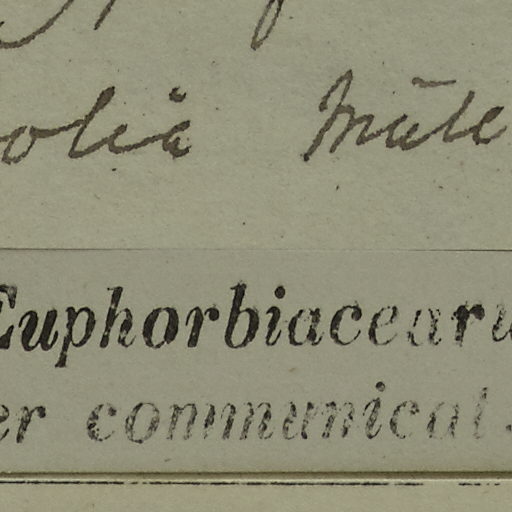 olia Müll
Euphorbiacearu
er communicat